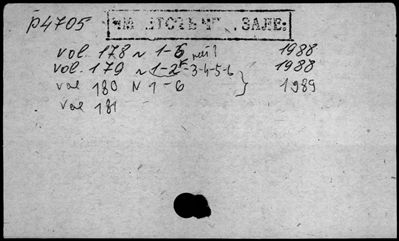 P4705
ЗАЛЕ:
vol. 178 N 1-6 1988
vol. 179 N 1-2-3-4-5-6 1988
vol 180 N 1-6 } 1989
vol 181